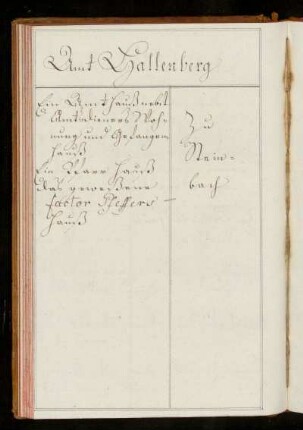 Amt Hallenberg
Ein Amthauß nebst
Amtsdieners Woh-
nung und Gefangen
hauß
Ein Pfarr Hauß
das gewesene
factor Pfeffers
Hauß
Zu
Stain-
bach